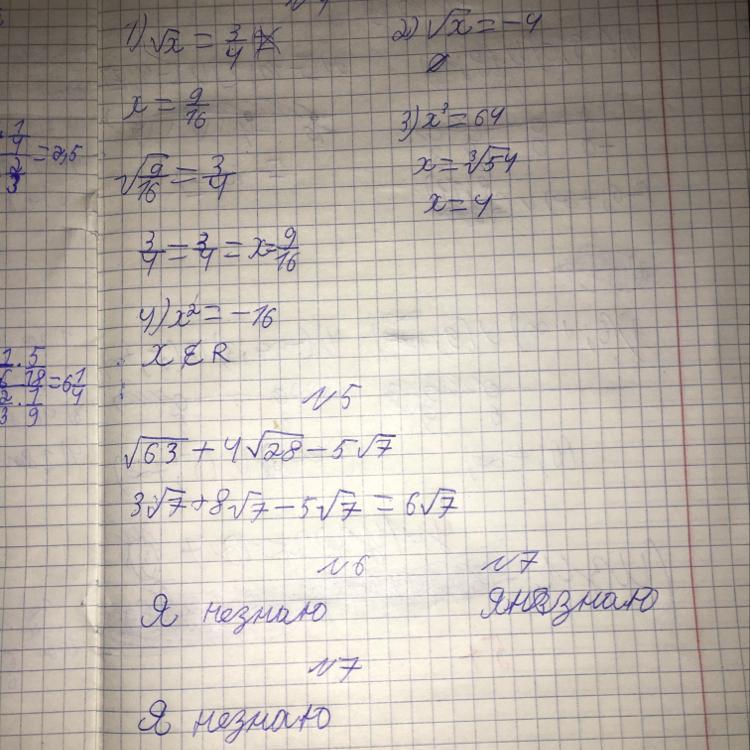 1) √x = 3/4
x = 9/16
√9/16 = 3/4
3/4 = 3/4 = x = 9/16
2) √x = -4
∅
3) x³ = 64
x = ³√54
x = 4
4) x² = -16
x ∉ R
= 2,5
1 5
6 18
2 1
3 9
= 6 1/4
№5
√63 + 4√28 - 5√7
3√7 + 8√7 - 5√7 = 6√7
№6
Я незнаю
№7
Я незнаю
№7
Я незнаю